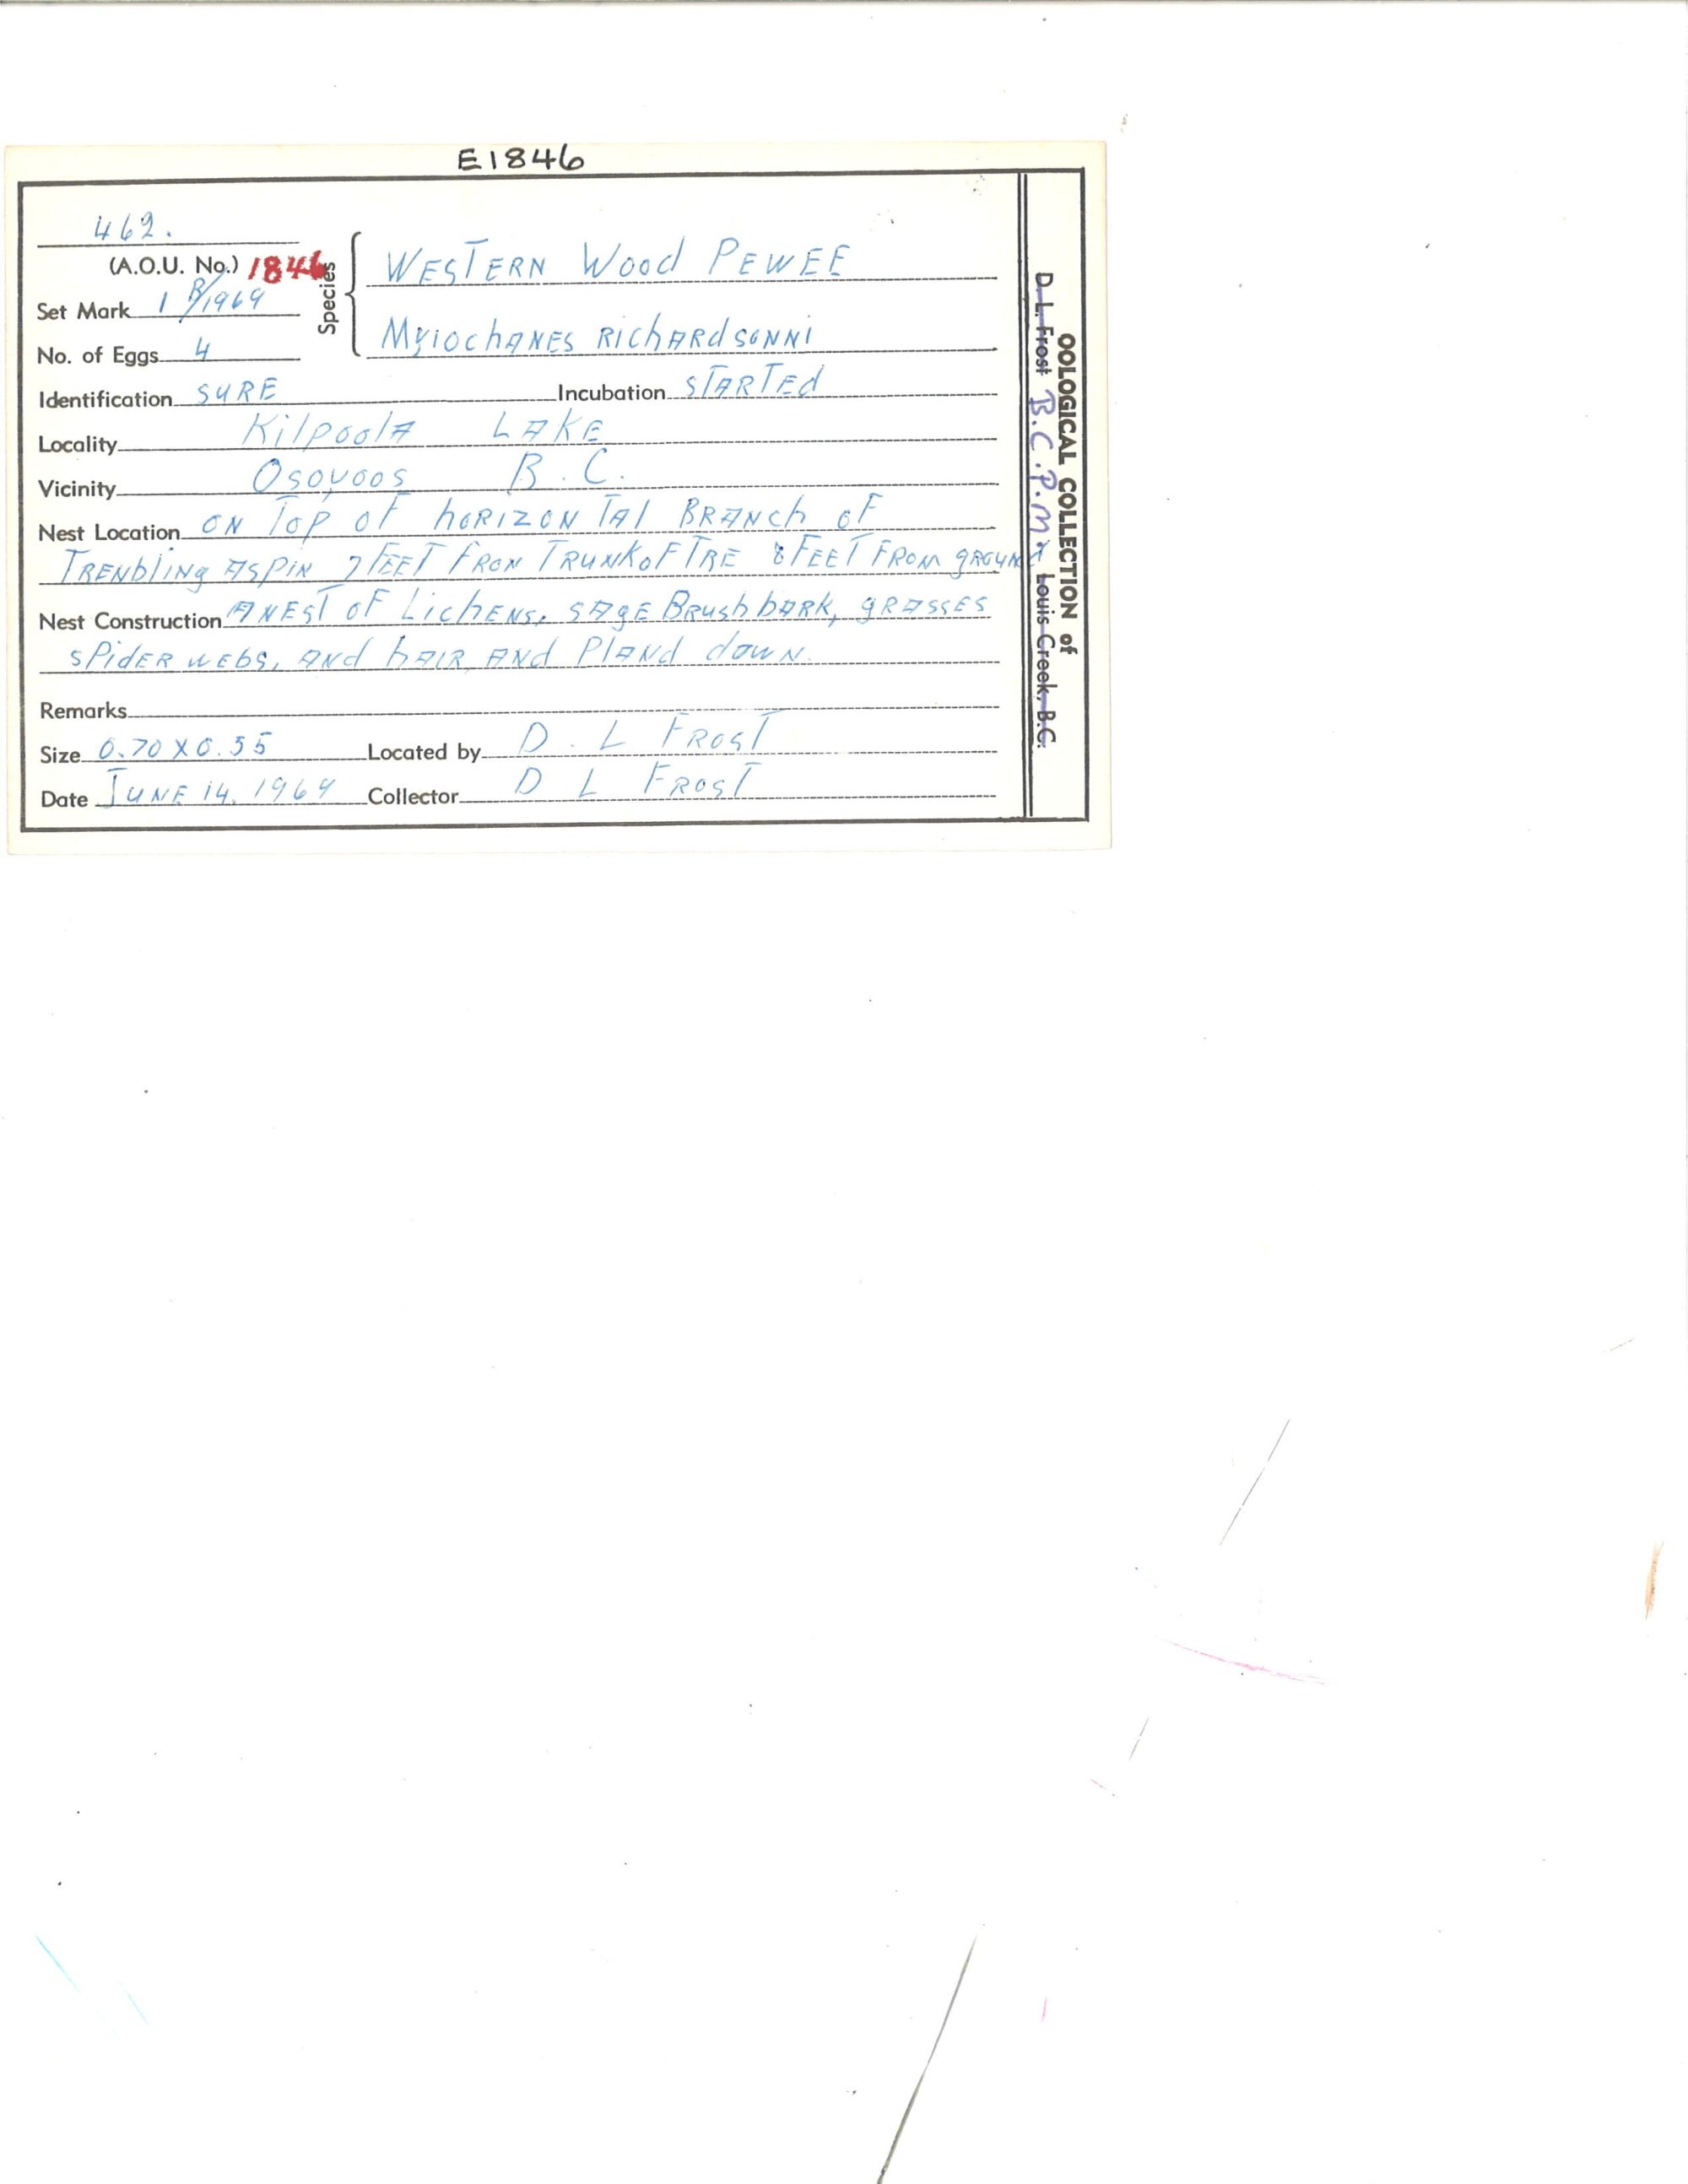 E1846
462.
(A.O.U. No.) 1846
Species { WESTERN Wood PEWEE
Set Mark 1 B/1969
MyiochANES RichARdSONNI
No. of Eggs 4
Identification SURE Incubation STARTEd
Locality KilpoolA LAKE
Vicinity OSOYOOS B.C.
Nest Location ON TOP OF hORIZONTAl BRANch OF
TRENbliNg ASPiN 7 FEET FRON TRUNK OF TRE 8 FEET FROM gROUNd
Nest Construction A NEST OF LichENS, SAgE BRush bARK, gRASSES
SPidER WEbS, ANd hAIR ANd PlANd dowN.
Remarks
Size 0.70 X 0.55 Located by D. L FROST
Date JUNE 14, 1969 Collector D L FROST
OOLOGICAL COLLECTION of
D. L. Frost B.C.P.M. Louis Creek, B.C.